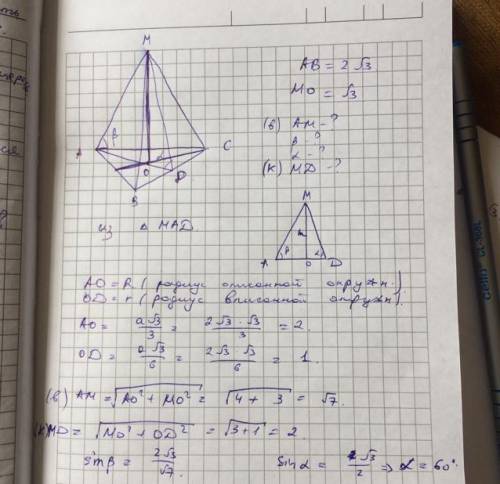 M
AB = 2√3
MO = √3
(в) AM - ?
β - ?
α - ?
(к) MD - ?
A β C
O α D
B
из Δ MAD.
M
h
A β O α D
AO = R (радиус описанной окружн.)
OD = r (радиус вписанной окружн).
AO = a√3/3 = 2√3·√3/3 = 2.
OD = a√3/6 = 2√3·√3/6 = 1.
(в) AM = √AO² + MO² = √4 + 3 = √7.
(к) MD = √MO² + OD² = √3+1 = 2.
sinβ = 2√3/√7. sinα = √3/2 ⇒ α = 60°.